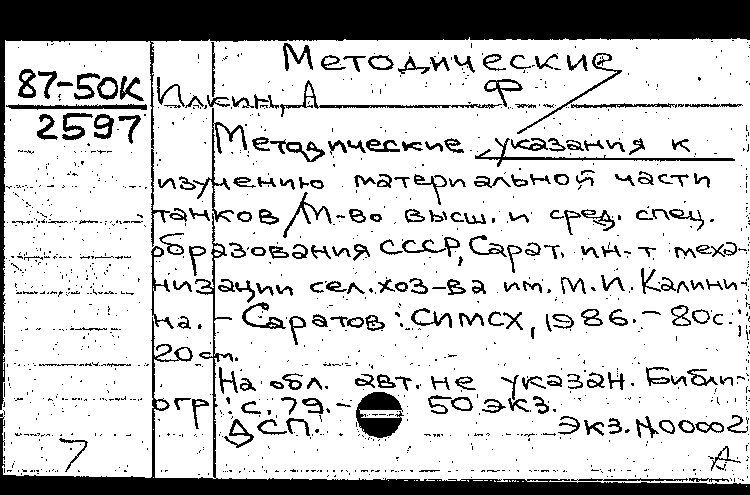 Методические
87-50К Илкин, А Ф
2597
Методические указания к
изучению материальной части
танков/М-во высш. и сред. спец.
образования СССР, Сарат. ин-т меха-
низации сел. хоз-ва им. М.И. Калини-
на. - Саратов : СИМСХ, 1986. - 80с.;
20 см.
На обл. авт. не указан. Библи-
огр.: с. 79. - 50 экз.
ДСП. экз. N00002
7
А